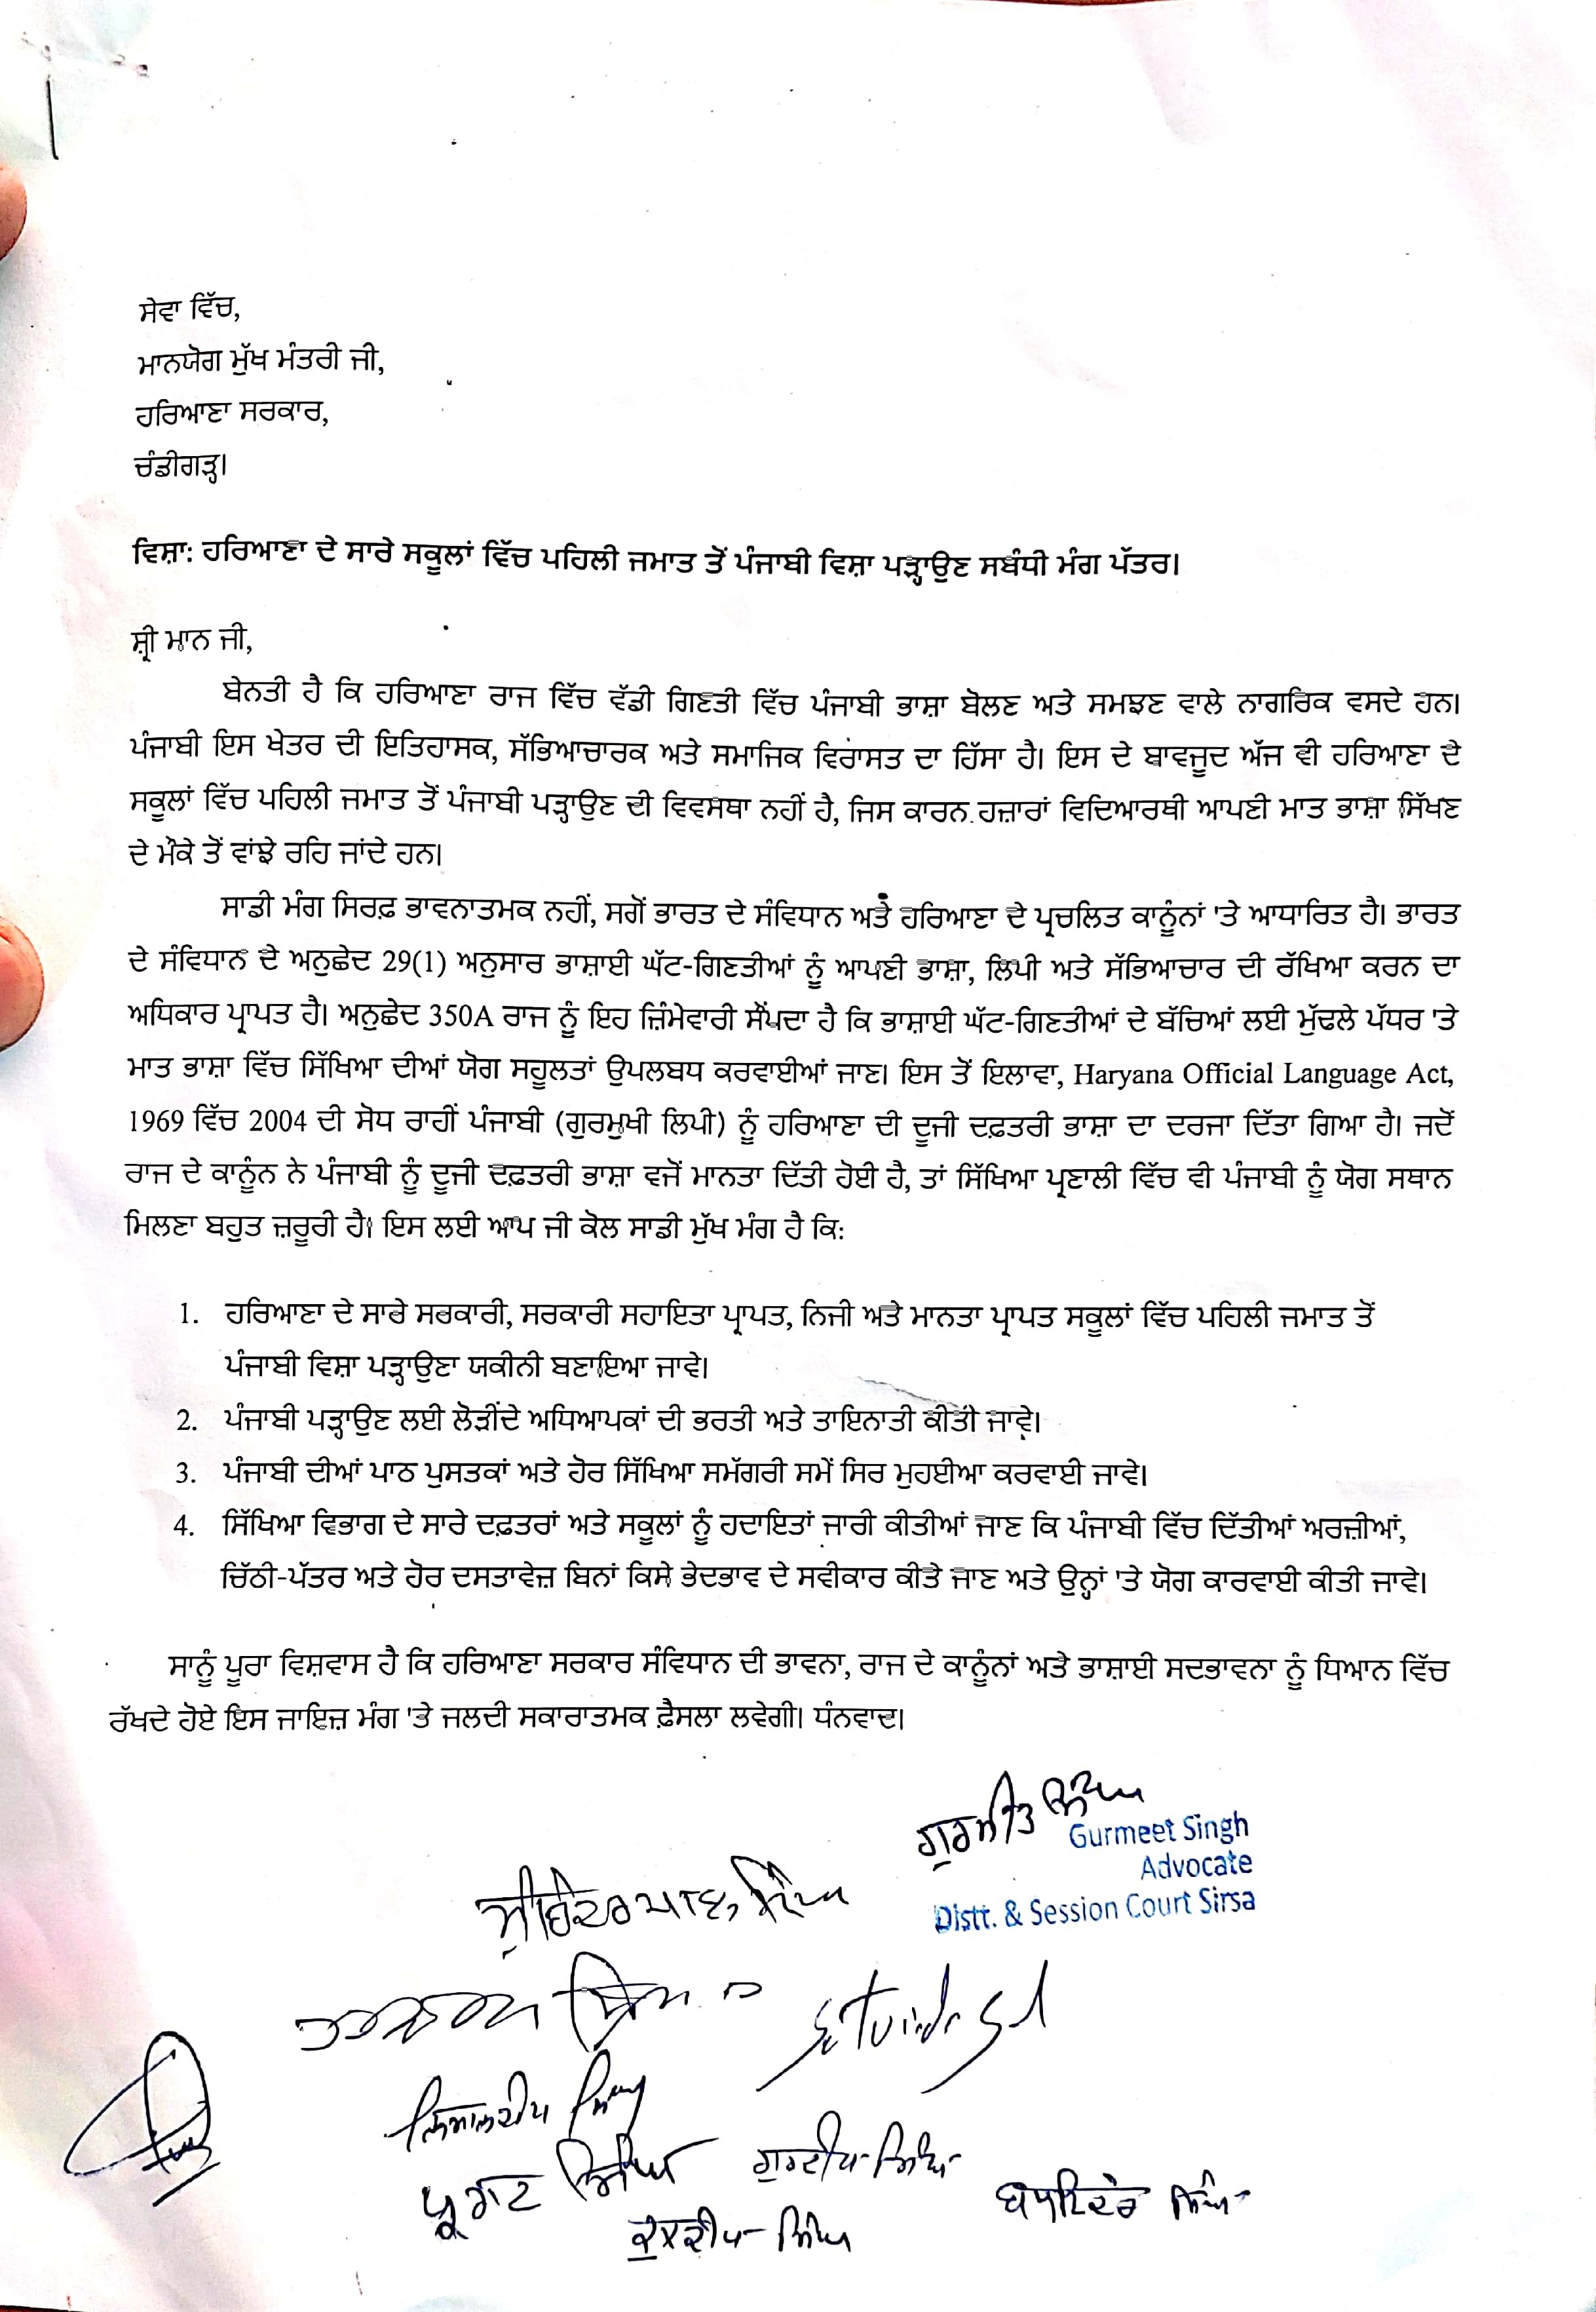 ਸੇਵਾ ਵਿੱਚ,
ਮਾਨਯੋਗ ਮੁੱਖ ਮੰਤਰੀ ਜੀ,
ਹਰਿਆਣਾ ਸਰਕਾਰ,
ਚੰਡੀਗੜ੍ਹ।
ਵਿਸ਼ਾ: ਹਰਿਆਣਾ ਦੇ ਸਾਰੇ ਸਕੂਲਾਂ ਵਿੱਚ ਪਹਿਲੀ ਜਮਾਤ ਤੋਂ ਪੰਜਾਬੀ ਵਿਸ਼ਾ ਪੜ੍ਹਾਉਣ ਸਬੰਧੀ ਮੰਗ ਪੱਤਰ।
ਸ਼੍ਰੀ ਮਾਨ ਜੀ,
ਬੇਨਤੀ ਹੈ ਕਿ ਹਰਿਆਣਾ ਰਾਜ ਵਿੱਚ ਵੱਡੀ ਗਿਣਤੀ ਵਿੱਚ ਪੰਜਾਬੀ ਭਾਸ਼ਾ ਬੋਲਣ ਅਤੇ ਸਮਝਣ ਵਾਲੇ ਨਾਗਰਿਕ ਵਸਦੇ ਹਨ।
ਪੰਜਾਬੀ ਇਸ ਖੇਤਰ ਦੀ ਇਤਿਹਾਸਕ, ਸੱਭਿਆਚਾਰਕ ਅਤੇ ਸਮਾਜਿਕ ਵਿਰਾਸਤ ਦਾ ਹਿੱਸਾ ਹੈ। ਇਸ ਦੇ ਬਾਵਜੂਦ ਅੱਜ ਵੀ ਹਰਿਆਣਾ ਦੇ
ਸਕੂਲਾਂ ਵਿੱਚ ਪਹਿਲੀ ਜਮਾਤ ਤੋਂ ਪੰਜਾਬੀ ਪੜ੍ਹਾਉਣ ਦੀ ਵਿਵਸਥਾ ਨਹੀਂ ਹੈ, ਜਿਸ ਕਾਰਨ ਹਜ਼ਾਰਾਂ ਵਿਦਿਆਰਥੀ ਆਪਣੀ ਮਾਤ ਭਾਸ਼ਾ ਸਿੱਖਣ
ਦੇ ਮੌਕੇ ਤੋਂ ਵਾਂਝੇ ਰਹਿ ਜਾਂਦੇ ਹਨ।
ਸਾਡੀ ਮੰਗ ਸਿਰਫ਼ ਭਾਵਨਾਤਮਕ ਨਹੀਂ, ਸਗੋਂ ਭਾਰਤ ਦੇ ਸੰਵਿਧਾਨ ਅਤੇ ਹਰਿਆਣਾ ਦੇ ਪ੍ਰਚਲਿਤ ਕਾਨੂੰਨਾਂ 'ਤੇ ਆਧਾਰਿਤ ਹੈ। ਭਾਰਤ
ਦੇ ਸੰਵਿਧਾਨ ਦੇ ਅਨੁਛੇਦ 29(1) ਅਨੁਸਾਰ ਭਾਸ਼ਾਈ ਘੱਟ-ਗਿਣਤੀਆਂ ਨੂੰ ਆਪਣੀ ਭਾਸ਼ਾ, ਲਿਪੀ ਅਤੇ ਸੱਭਿਆਚਾਰ ਦੀ ਰੱਖਿਆ ਕਰਨ ਦਾ
ਅਧਿਕਾਰ ਪ੍ਰਾਪਤ ਹੈ। ਅਨੁਛੇਦ 350A ਰਾਜ ਨੂੰ ਇਹ ਜ਼ਿੰਮੇਵਾਰੀ ਸੌਂਪਦਾ ਹੈ ਕਿ ਭਾਸ਼ਾਈ ਘੱਟ-ਗਿਣਤੀਆਂ ਦੇ ਬੱਚਿਆਂ ਲਈ ਮੁੱਢਲੇ ਪੱਧਰ 'ਤੇ
ਮਾਤ ਭਾਸ਼ਾ ਵਿੱਚ ਸਿੱਖਿਆ ਦੀਆਂ ਯੋਗ ਸਹੂਲਤਾਂ ਉਪਲਬਧ ਕਰਵਾਈਆਂ ਜਾਣ। ਇਸ ਤੋਂ ਇਲਾਵਾ, Haryana Official Language Act,
1969 ਵਿੱਚ 2004 ਦੀ ਸੋਧ ਰਾਹੀਂ ਪੰਜਾਬੀ (ਗੁਰਮੁਖੀ ਲਿਪੀ) ਨੂੰ ਹਰਿਆਣਾ ਦੀ ਦੂਜੀ ਦਫ਼ਤਰੀ ਭਾਸ਼ਾ ਦਾ ਦਰਜਾ ਦਿੱਤਾ ਗਿਆ ਹੈ। ਜਦੋਂ
ਰਾਜ ਦੇ ਕਾਨੂੰਨ ਨੇ ਪੰਜਾਬੀ ਨੂੰ ਦੂਜੀ ਦਫ਼ਤਰੀ ਭਾਸ਼ਾ ਵਜੋਂ ਮਾਨਤਾ ਦਿੱਤੀ ਹੋਈ ਹੈ, ਤਾਂ ਸਿੱਖਿਆ ਪ੍ਰਣਾਲੀ ਵਿੱਚ ਵੀ ਪੰਜਾਬੀ ਨੂੰ ਯੋਗ ਸਥਾਨ
ਮਿਲਣਾ ਬਹੁਤ ਜ਼ਰੂਰੀ ਹੈ। ਇਸ ਲਈ ਆਪ ਜੀ ਕੋਲ ਸਾਡੀ ਮੁੱਖ ਮੰਗ ਹੈ ਕਿ:
1. ਹਰਿਆਣਾ ਦੇ ਸਾਰੇ ਸਰਕਾਰੀ, ਸਰਕਾਰੀ ਸਹਾਇਤਾ ਪ੍ਰਾਪਤ, ਨਿਜੀ ਅਤੇ ਮਾਨਤਾ ਪ੍ਰਾਪਤ ਸਕੂਲਾਂ ਵਿੱਚ ਪਹਿਲੀ ਜਮਾਤ ਤੋਂ
ਪੰਜਾਬੀ ਵਿਸ਼ਾ ਪੜ੍ਹਾਉਣਾ ਯਕੀਨੀ ਬਣਾਇਆ ਜਾਵੇ।
2. ਪੰਜਾਬੀ ਪੜ੍ਹਾਉਣ ਲਈ ਲੋੜੀਂਦੇ ਅਧਿਆਪਕਾਂ ਦੀ ਭਰਤੀ ਅਤੇ ਤਾਇਨਾਤੀ ਕੀਤੀ ਜਾਵੇ।
3. ਪੰਜਾਬੀ ਦੀਆਂ ਪਾਠ ਪੁਸਤਕਾਂ ਅਤੇ ਹੋਰ ਸਿੱਖਿਆ ਸਮੱਗਰੀ ਸਮੇਂ ਸਿਰ ਮੁਹਈਆ ਕਰਵਾਈ ਜਾਵੇ।
4. ਸਿੱਖਿਆ ਵਿਭਾਗ ਦੇ ਸਾਰੇ ਦਫ਼ਤਰਾਂ ਅਤੇ ਸਕੂਲਾਂ ਨੂੰ ਹਦਾਇਤਾਂ ਜਾਰੀ ਕੀਤੀਆਂ ਜਾਣ ਕਿ ਪੰਜਾਬੀ ਵਿੱਚ ਦਿੱਤੀਆਂ ਅਰਜ਼ੀਆਂ,
ਚਿੱਠੀ-ਪੱਤਰ ਅਤੇ ਹੋਰ ਦਸਤਾਵੇਜ਼ ਬਿਨਾਂ ਕਿਸੇ ਭੇਦਭਾਵ ਦੇ ਸਵੀਕਾਰ ਕੀਤੇ ਜਾਣ ਅਤੇ ਉਨ੍ਹਾਂ 'ਤੇ ਯੋਗ ਕਾਰਵਾਈ ਕੀਤੀ ਜਾਵੇ।
ਸਾਨੂੰ ਪੂਰਾ ਵਿਸ਼ਵਾਸ ਹੈ ਕਿ ਹਰਿਆਣਾ ਸਰਕਾਰ ਸੰਵਿਧਾਨ ਦੀ ਭਾਵਨਾ, ਰਾਜ ਦੇ ਕਾਨੂੰਨਾਂ ਅਤੇ ਭਾਸ਼ਾਈ ਸਦਭਾਵਨਾ ਨੂੰ ਧਿਆਨ ਵਿੱਚ
ਰੱਖਦੇ ਹੋਏ ਇਸ ਜਾਇਜ਼ ਮੰਗ 'ਤੇ ਜਲਦੀ ਸਕਾਰਾਤਮਕ ਫ਼ੈਸਲਾ ਲਵੇਗੀ। ਧੰਨਵਾਦ।
ਗੁਰਮੀਤ ਸਿੰਘ
Gurmeet Singh
Advocate
Distt. & Session Court Sirsa
ਸਿੰਘ
ਪ੍ਰਗਟ ਸਿੰਘ
ਗੁਰਦੀਪ ਸਿੰਘ
ਕੁਲਦੀਪ ਸਿੰਘ
ਸਿੰਘ